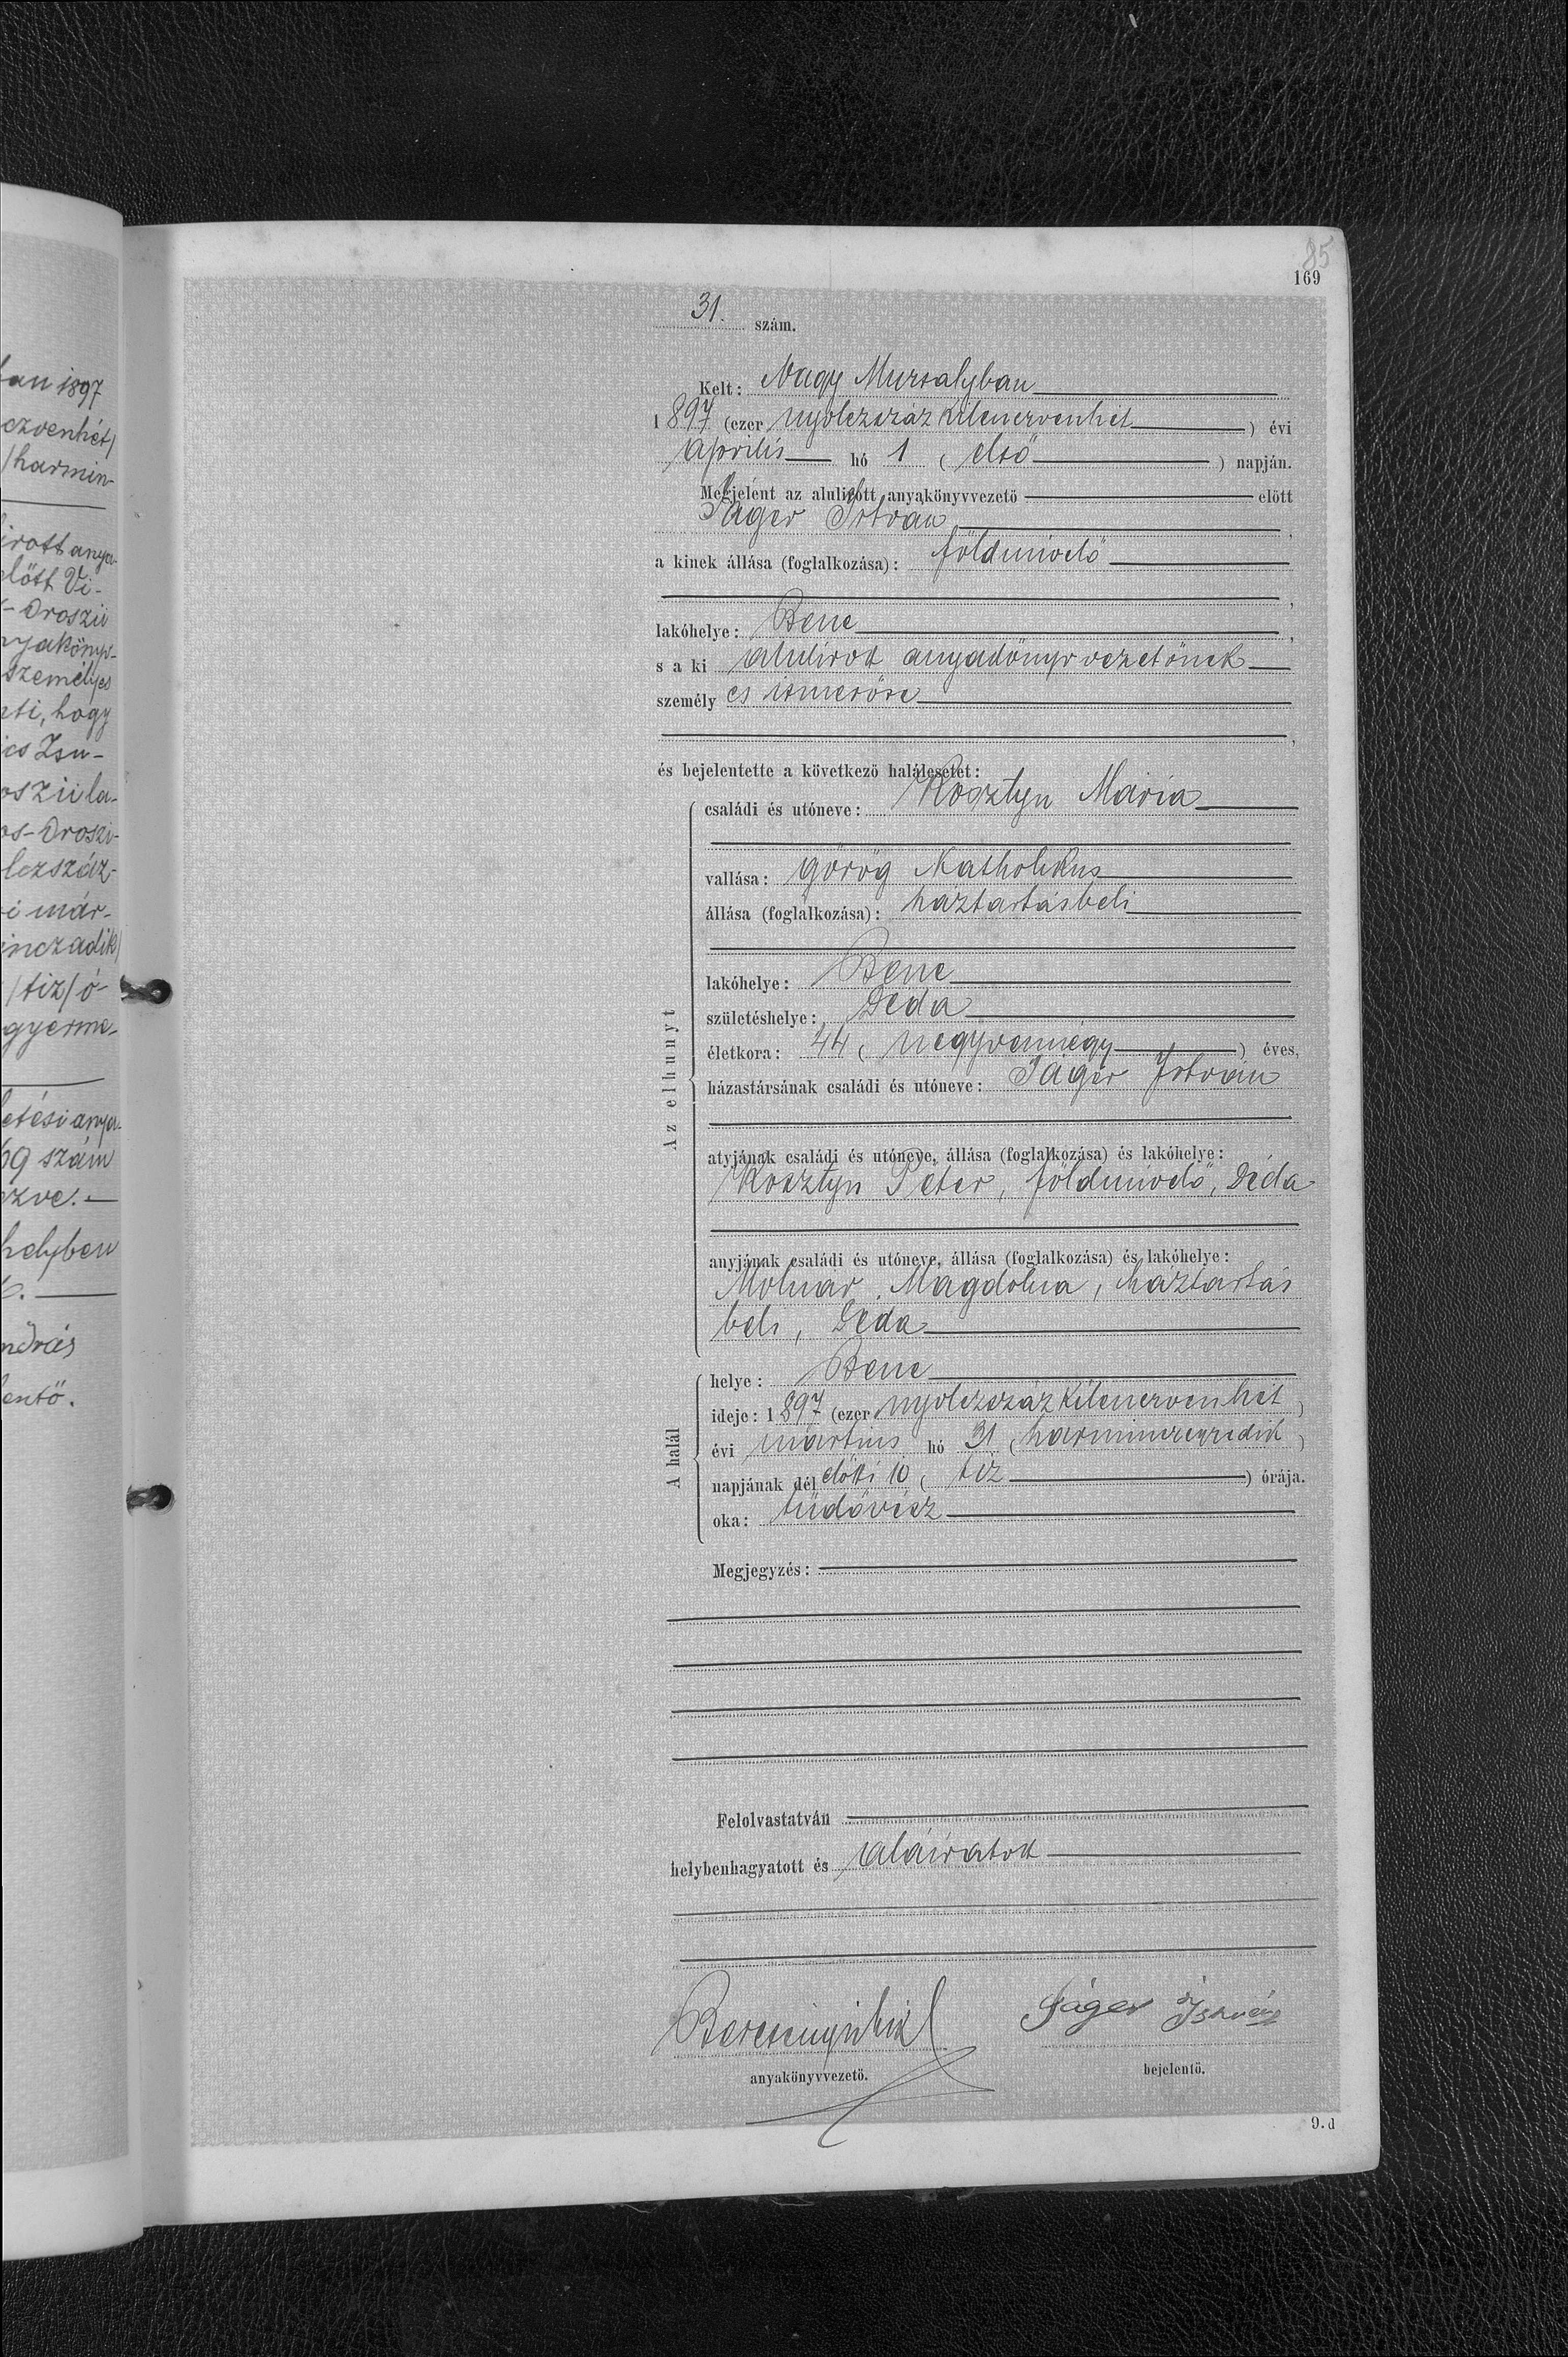 fan 1897
czvenhét/
/harmin-
irott anya-
előtt Vi-
- Oroszii
nyakönyv-
személyes
nti, hogy
ics Zsu-
oszii la-
os-Oroszi-
lczszáz-
i már-
inczadik/
/tiz/ ó-
gyerme-
etési anya-
69 szám
zve. —
helyben
ndrás
entő.
85
169
31. szám.
Kelt: Nagy Muzsalyban
1897 (ezer nyolczszáz kilenczvenhet) évi
április hó 1 (első) napján.
Megjelent az alulirott anyakönyvvezető előtt
Jáger István,
a kinek állása (foglalkozása): földmivelő
lakóhelye: Bene,
s a ki alulirod anyadönyvvezetőnek
személy es ismerőse
és bejelentette a következő halálesetet:
családi és utóneve: Kosztyn Mária
vallása: görög Katholikus
állása (foglalkozása): háztartásbeli
lakóhelye: Bene
születéshelye: Deda
életkora: 44 (negyvennégy) éves,
házastársának családi és utóneve: Jáger István
Az elhunyt
atyjának családi és utóneve, állása (foglalkozása) és lakóhelye:
Kosztyn Péter, földmivelő, Déda
anyjának családi és utóneve, állása (foglalkozása) és lakóhelye:
Molnar Magdolna, háztartás
beli, Deda
helye: Bene
ideje: 1897 (ezer nyolczszáz kilenczvenhét)
A halál
évi mártius hó 31 (harminczegyedik)
napjának dél előtti 10 (tiz) órája.
oka: tüdővész
Megjegyzés:
Felolvastatván
helybenhagyatott és aláiratod
Jáger István
anyakönyvvezető.
bejelentő.
9.d